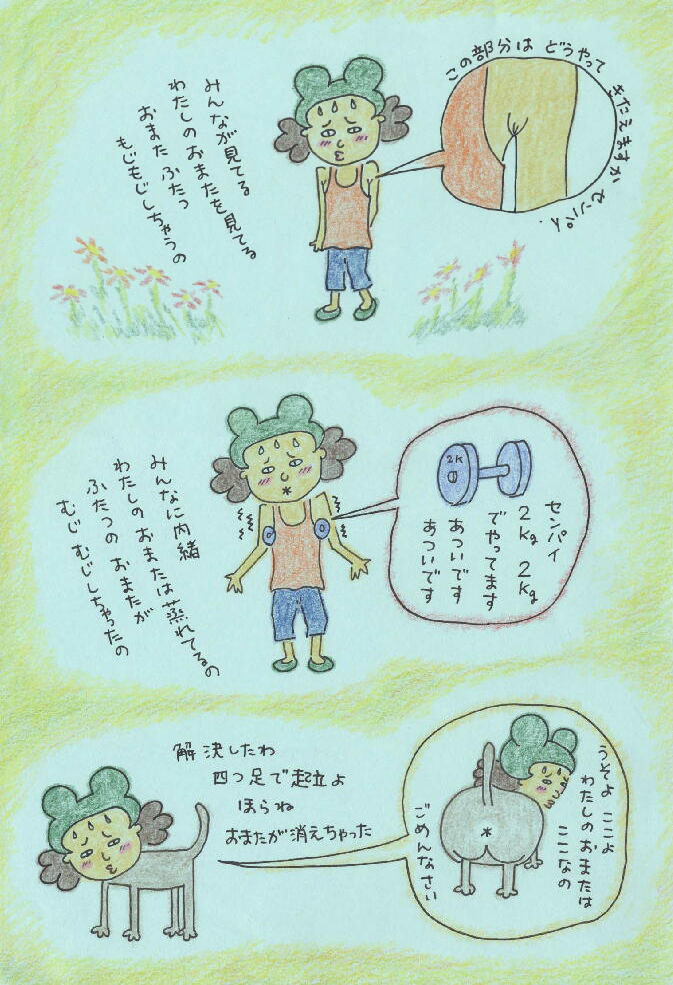 この部分は どうやって きたえますか センパイ.
みんなが見てる
わたしの おまたを見てる
おまた ふたつ
もじもじしちゃうの
2K
センパイ
2kg 2kg
でやってます
あついです
あついです
みんなに内緒
わたしの おまたは 蒸れてるの
ふたつの おまたが
むじ むじしちゃったの
解決したわ
四つ足で起立よ
ほらね
おまたが消えちゃった
うそよ ここよ
わたしの おまたは
ここなの
ごめんなさい